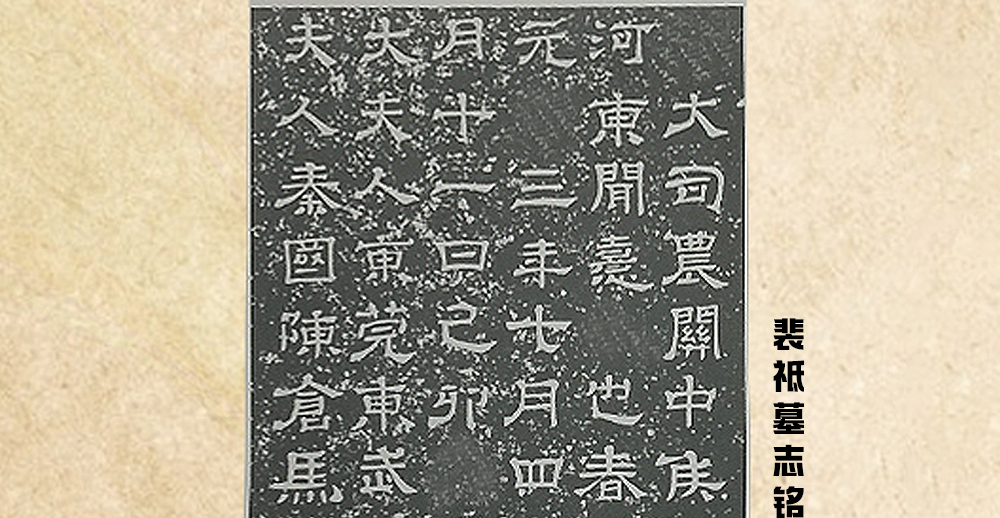 裴祗墓志铭
大司農關中侯
河東聞憙也春
元三年七月四
月十一日己卯
大夫人東莞東武
夫人秦國陳倉馬